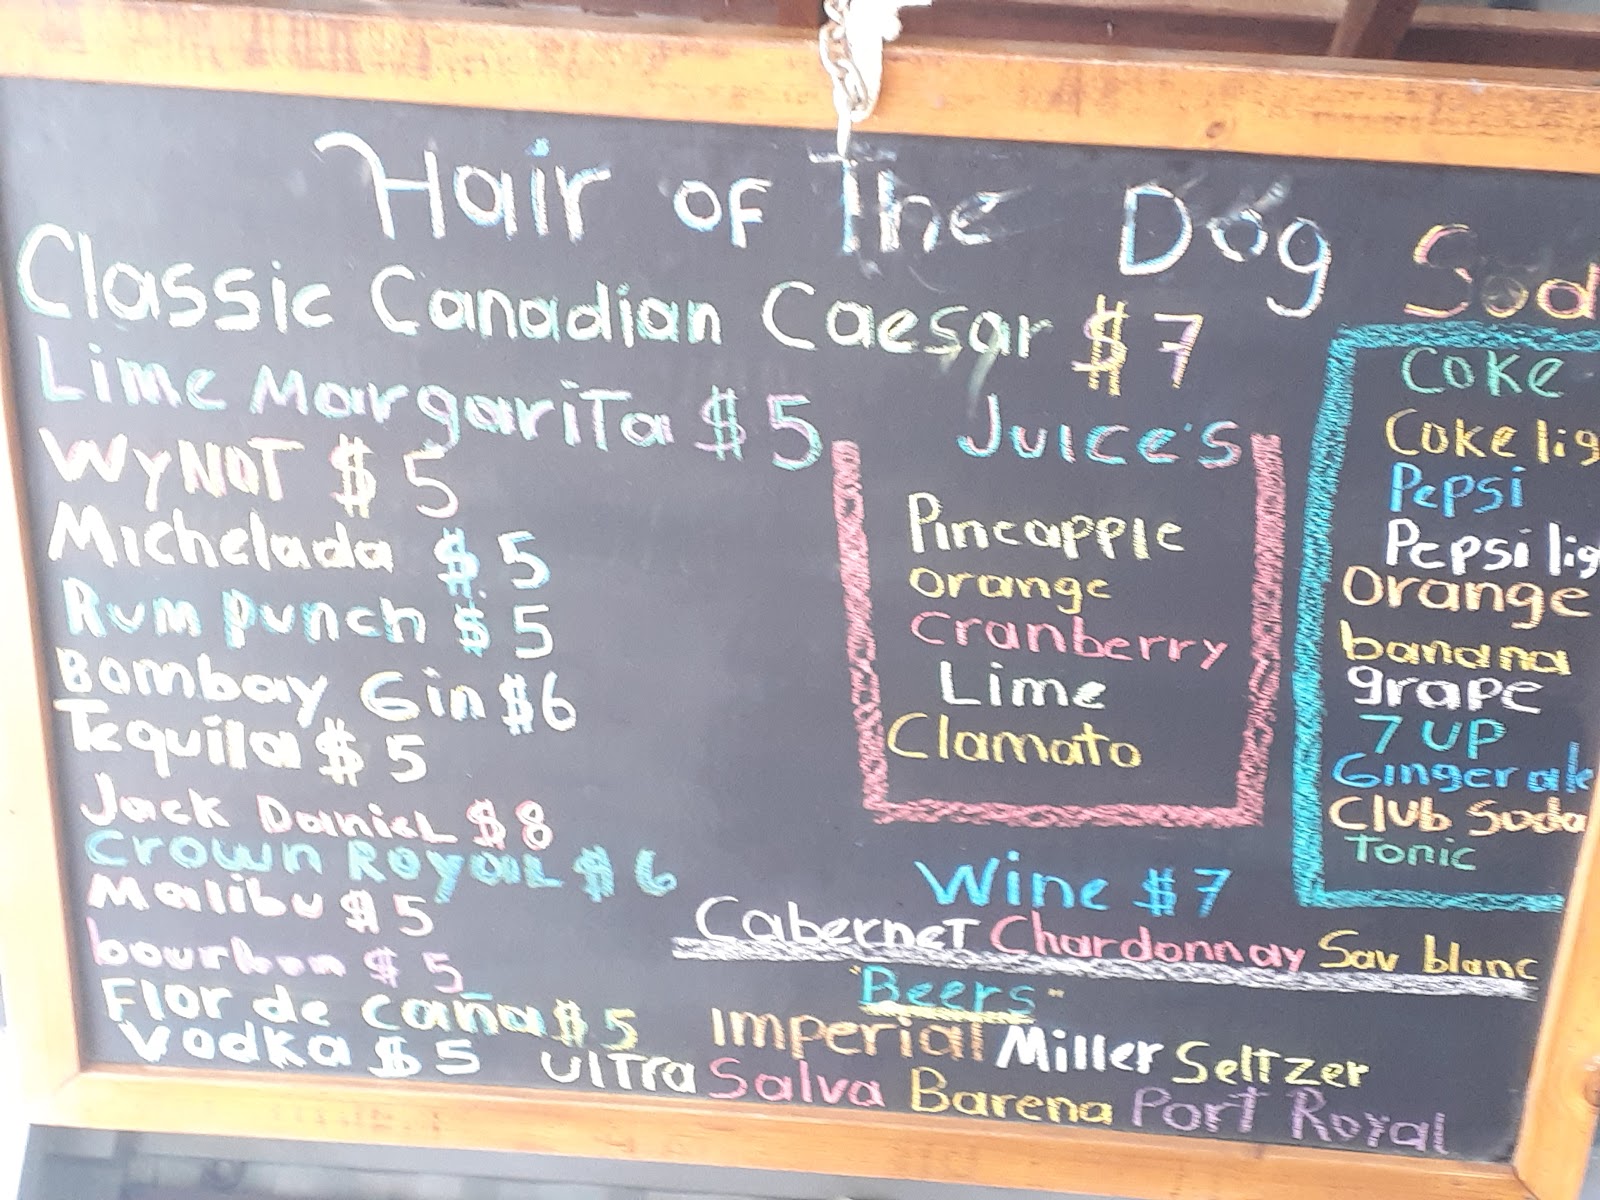 Hair of The Dog
Classic Canadian Caesar $7
Lime MargariTa $5
WyNOT $5
Michelada $5
Rum punch $5
Bombay Gin $6
Tequila $5
Jack DanieL $8
Crown RoyaL $6
Malibu $5
bourbon $5
Flor de caña $5
Vodka $5
Juice's
Pineapple
orange
cranberry
Lime
Clamato
Wine $7
CaberneT Chardonnay Sav blanc
"Beers"
Imperial Miller SelTzer
UlTra Salva Barena Port Royal
Sod
Coke
Coke lig
Pepsi
Pepsi lig
Orange
banana
grape
7 UP
Ginger ale
Club Soda
Tonic